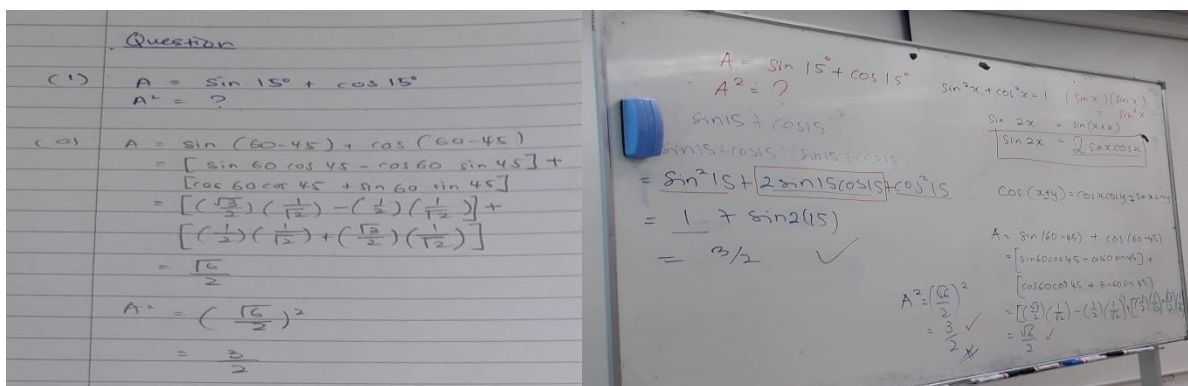 Question
(1) A = sin 15° + cos 15°
A² = ?
(a) A = sin (60-45) + cos (60-45)
= [sin 60 cos 45 - cos 60 sin 45] +
[cos 60 cos 45 + sin 60 sin 45]
= [(√3/2)(1/√2) - (1/2)(1/√2)] +
[(1/2)(1/√2) + (√3/2)(1/√2)]
= √6/2
A² = (√6/2)²
= 3/2
A = sin 15° + cos 15°
A² = ?
(sin15 + cos15)²
sin15 + cos15) (sin15 + cos15
= sin²15 + 2sin15cos15 + cos²15
= 1 + sin2(15)
= 3/2 ✓
sin²x + cos²x = 1 (sinx)(sinx)
= sin²x
sin 2x = sin(x+x)
sin 2x = 2 sinxcosx
cos(x±y) = cosxcosy ∓ sinxsiny
A = sin(60-45) + cos(60-45)
= [sin60cos45 - cos60sin45] +
[cos60cos45 + sin60sin45]
= [(√3/2)(1/√2) - (1/2)(1/√2)] + [(1/2)(1/√2) + (√3/2)(1/√2)]
= √6/2 ✓
A² = (√6/2)²
= 3/2 ✓